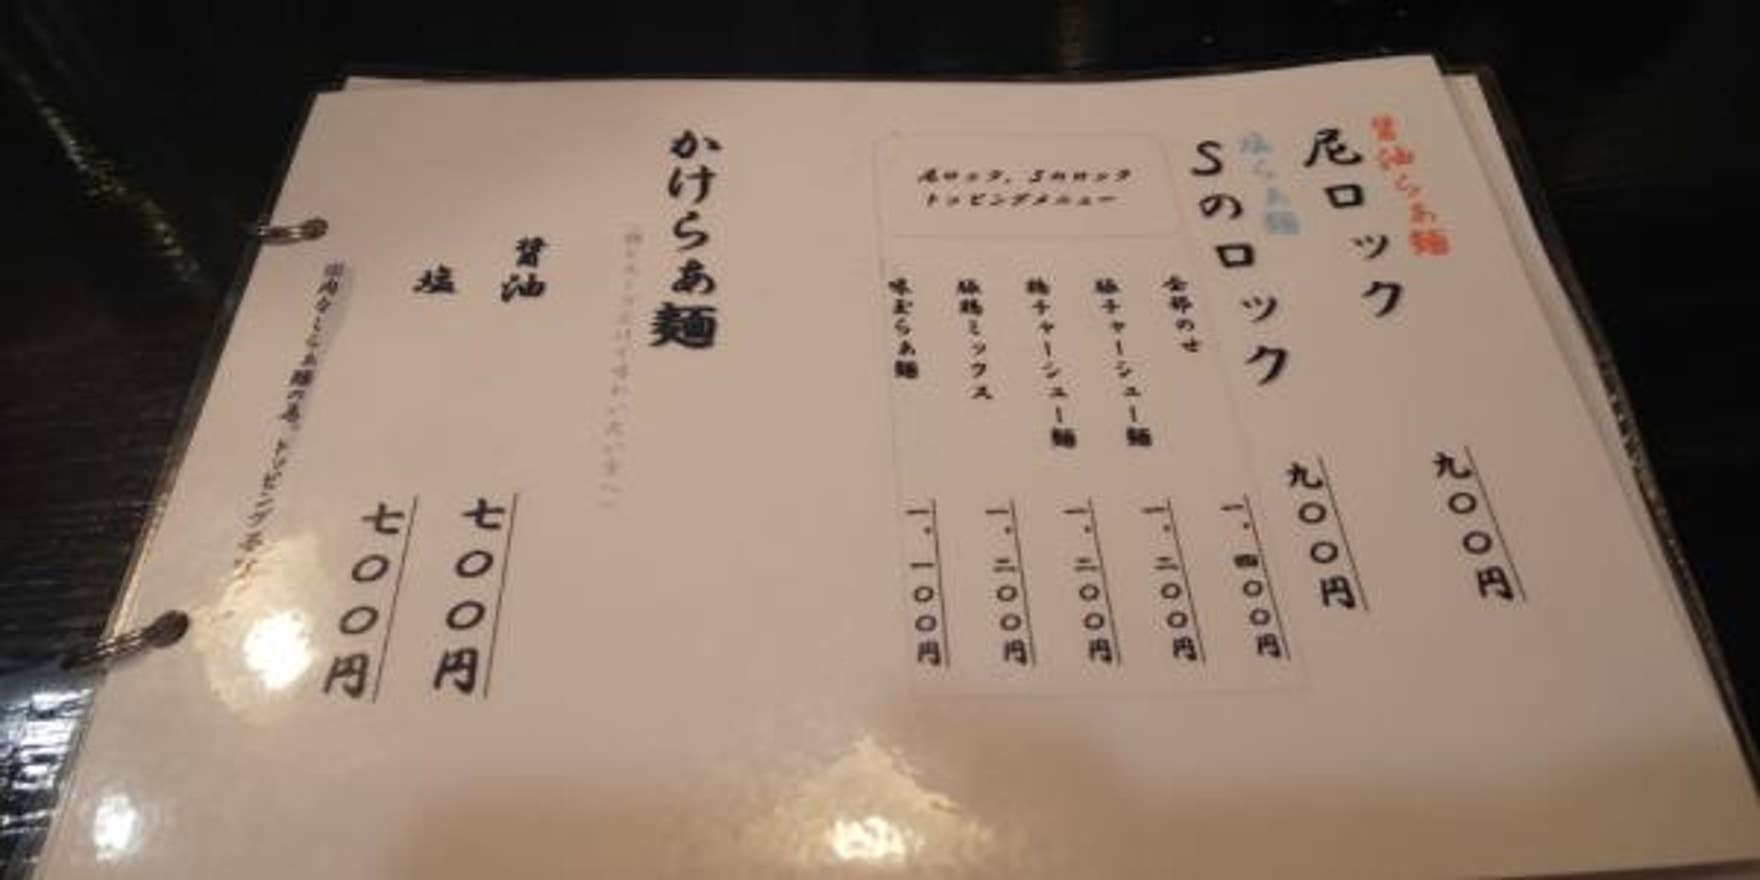 醤油らぁ麺
尼ロック
九〇〇円
塩らぁ麺
Sのロック
九〇〇円
尼ロック、Sのロック
トッピングメニュー
全部のせ
一、四〇〇円
豚チャーシュー麺
一、二〇〇円
鶏チャーシュー麺
一、二〇〇円
豚鶏ミックス
一、二〇〇円
味玉らぁ麺
一、一〇〇円
かけらぁ麺
醤油
七〇〇円
塩
七〇〇円